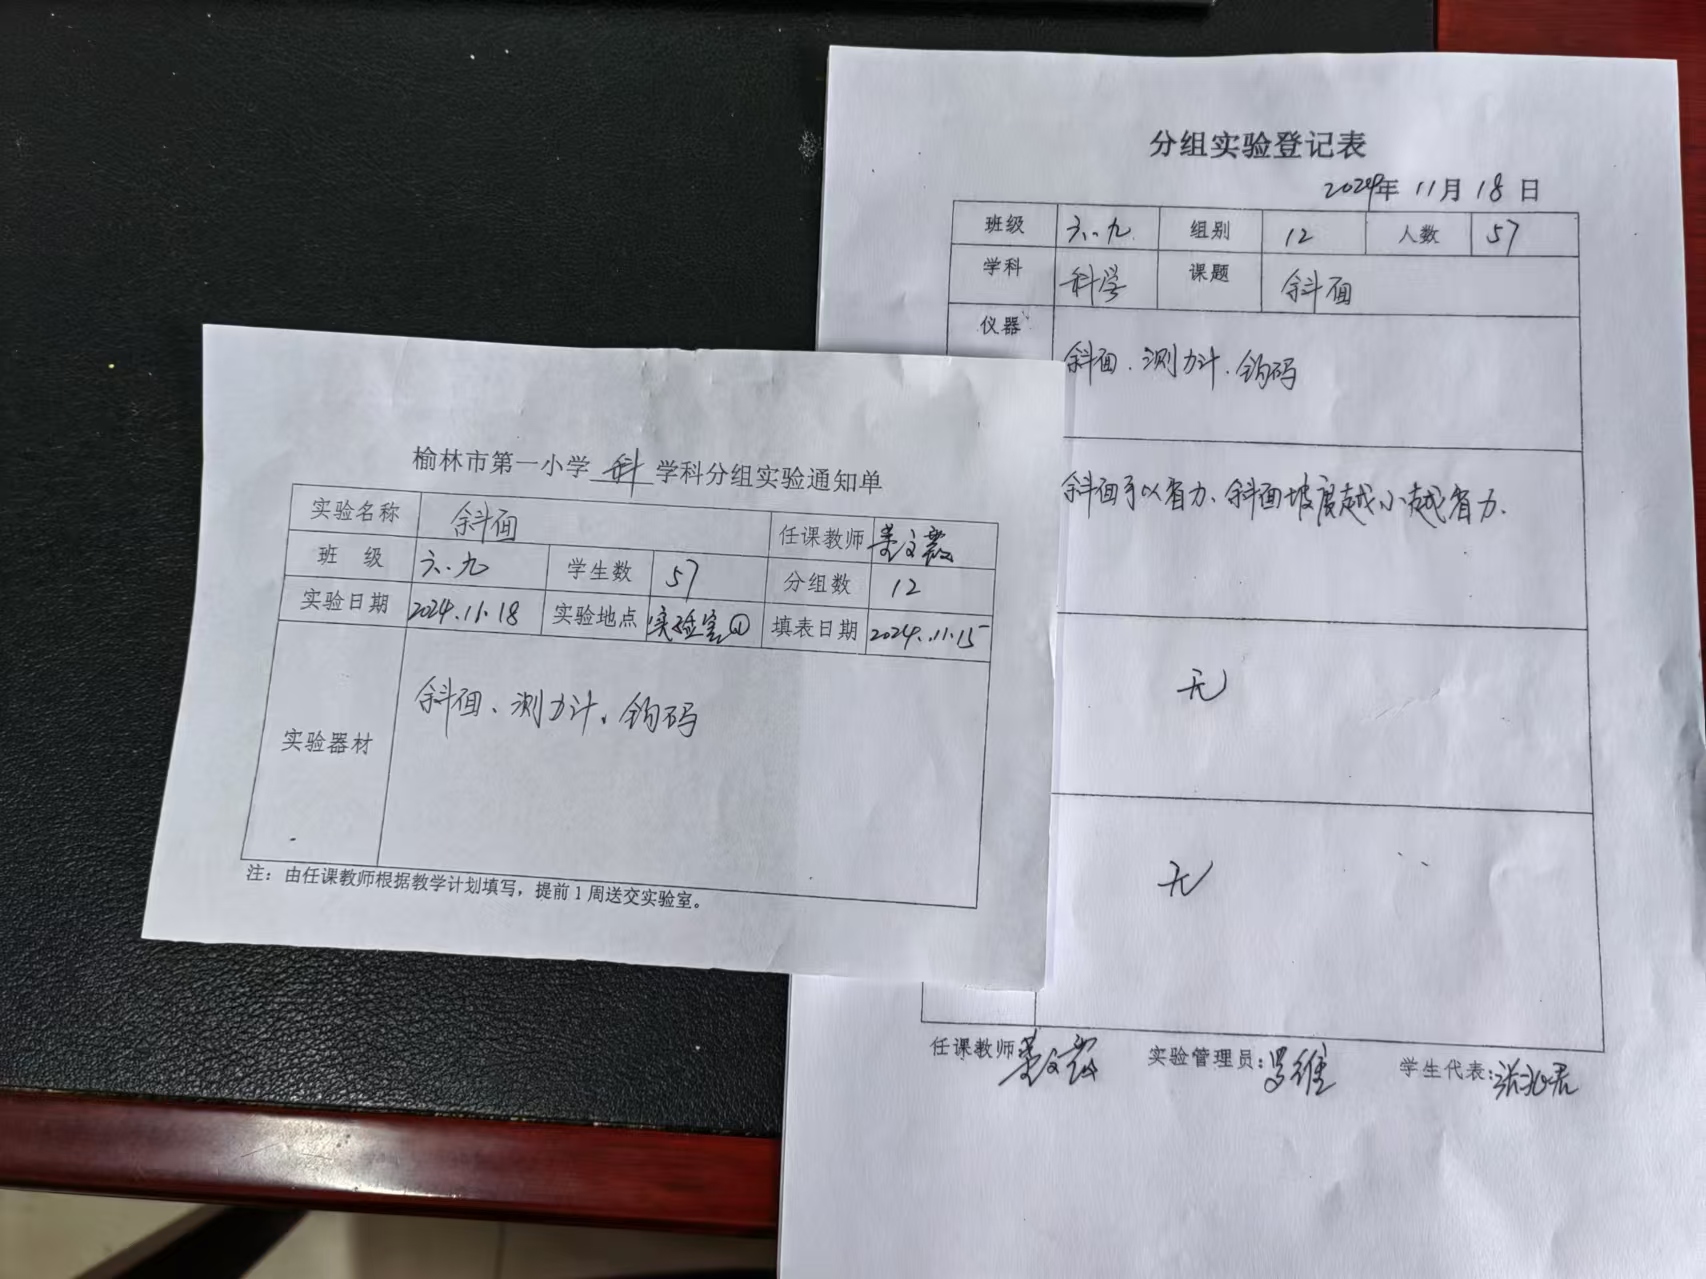 榆林市第一小学 科 学科分组实验通知单
实验名称 斜面 任课教师
班 级 六.九 学生数 57 分组数 12
实验日期 2024.11.18 实验地点 实验室① 填表日期 2024.11.15
实验器材 斜面、测力计、钩码
注：由任课教师根据教学计划填写，提前1周送交实验室。
分组实验登记表
2024年 11月 18日
班级 六.九 组别 12 人数 57
学科 科学 课题 斜面
仪器
斜面、测力计、钩码
斜面可以省力、斜面坡度越小越省力.
无
无
任课教师 实验管理员：罗维 学生代表：